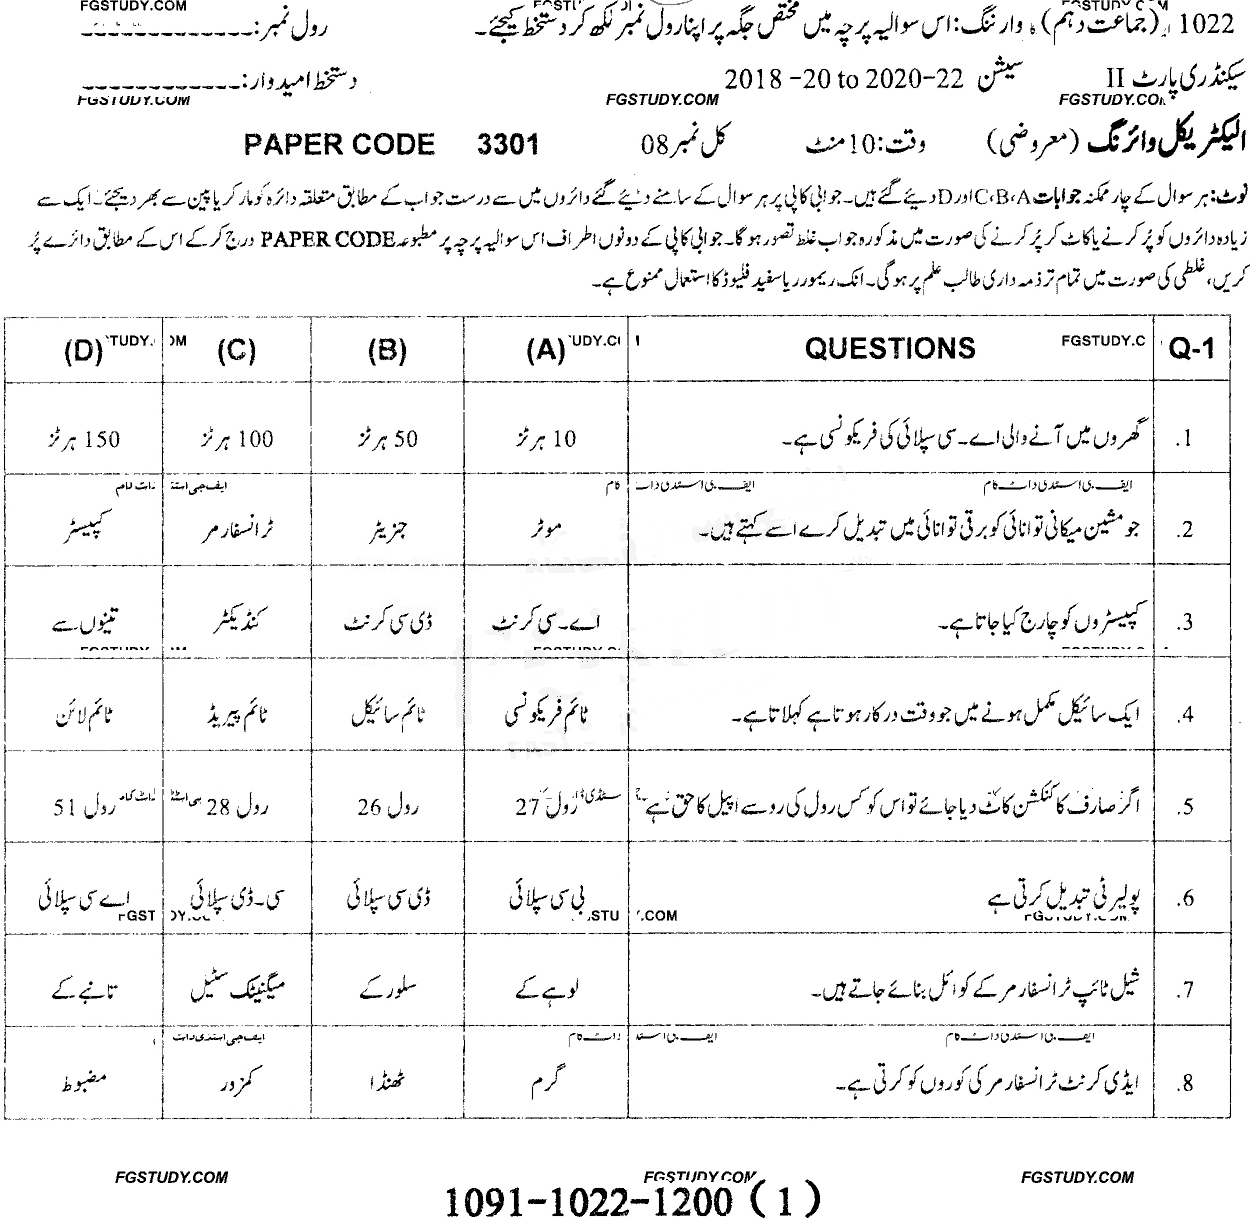 FGSTUDY.COM FGSTUDY.COM
1022 (جماعت دہم) وارننگ: اس سوالیہ پرچہ میں مختص جگہ پر اپنا رول نمبر لکھ کر دستخط کیجئے۔ رول نمبر:
سیکنڈری پارٹ II سیشن 2018 -20 to 2020-22 دستخط امیدوار:
FGSTUDY.COM FGSTUDY.COM FGSTUDY.COM
الیکٹریکل وائرنگ (معروضی) وقت: 10 منٹ کل نمبر 08 PAPER CODE 3301
نوٹ: ہر سوال کے چار ممکنہ جوابات C،B،A اور D دیئے گئے ہیں۔ جوابی کاپی پر ہر سوال کے سامنے دیئے گئے دائروں میں سے درست جواب کے مطابق متعلقہ دائرہ کو مارکر یا پین سے بھر دیجئے۔ ایک سے
زیادہ دائروں کو پُر کرنے یا کاٹ کر پُر کرنے کی صورت میں مذکورہ جواب غلط تصور ہو گا۔ جوابی کاپی کے دونوں اطراف اس سوالیہ پرچہ پر مطبوعہ PAPER CODE درج کر کے اس کے مطابق دائرے پُر
کریں، غلطی کی صورت میں تمام تر ذمہ داری طالب علم پر ہو گی۔ انک ریمور ریا سفید فلیوڈ کا استعمال ممنوع ہے۔
Q-1 QUESTIONS (A) (B) (C) (D)
1. گھروں میں آنے والی اے۔سی سپلائی کی فریکونسی ہے۔ 10 ہرٹز 50 ہرٹز 100 ہرٹز 150 ہرٹز
2. جو مشین میکانی توانائی کو برقی توانائی میں تبدیل کرے اسے کہتے ہیں۔ موٹر جنریٹر ٹرانسفارمر کپیسٹر
3. کپیسٹروں کو چارج کیا جاتا ہے۔ اے۔سی کرنٹ ڈی سی کرنٹ کنڈیکٹر تینوں سے
4. ایک سائیکل مکمل ہونے میں جو وقت درکار ہوتا ہے کہلاتا ہے۔ ٹائم فریکونسی ٹائم سائیکل ٹائم پیریڈ ٹائم لائن
5. اگر صارف کا کنکشن کاٹ دیا جائے تو اس کو کس رول کی رو سے اپیل کا حق ہے رول 27 رول 26 رول 28 رول 51
6. پولیرٹی تبدیل کرتی ہے بی سی سپلائی ڈی سی سپلائی سی۔ڈی سپلائی اے سی سپلائی
7. شیل ٹائپ ٹرانسفارمر کے کوائل بنائے جاتے ہیں۔ لوہے کے سلور کے میگنیٹک سٹیل تانبے کے
8. ایڈی کرنٹ ٹرانسفارمر کی کوروں کو کرتی ہے۔ گرم ٹھنڈا کمزور مضبوط
FGSTUDY.COM FGSTUDY.COM FGSTUDY.COM
1091-1022-1200 (1)